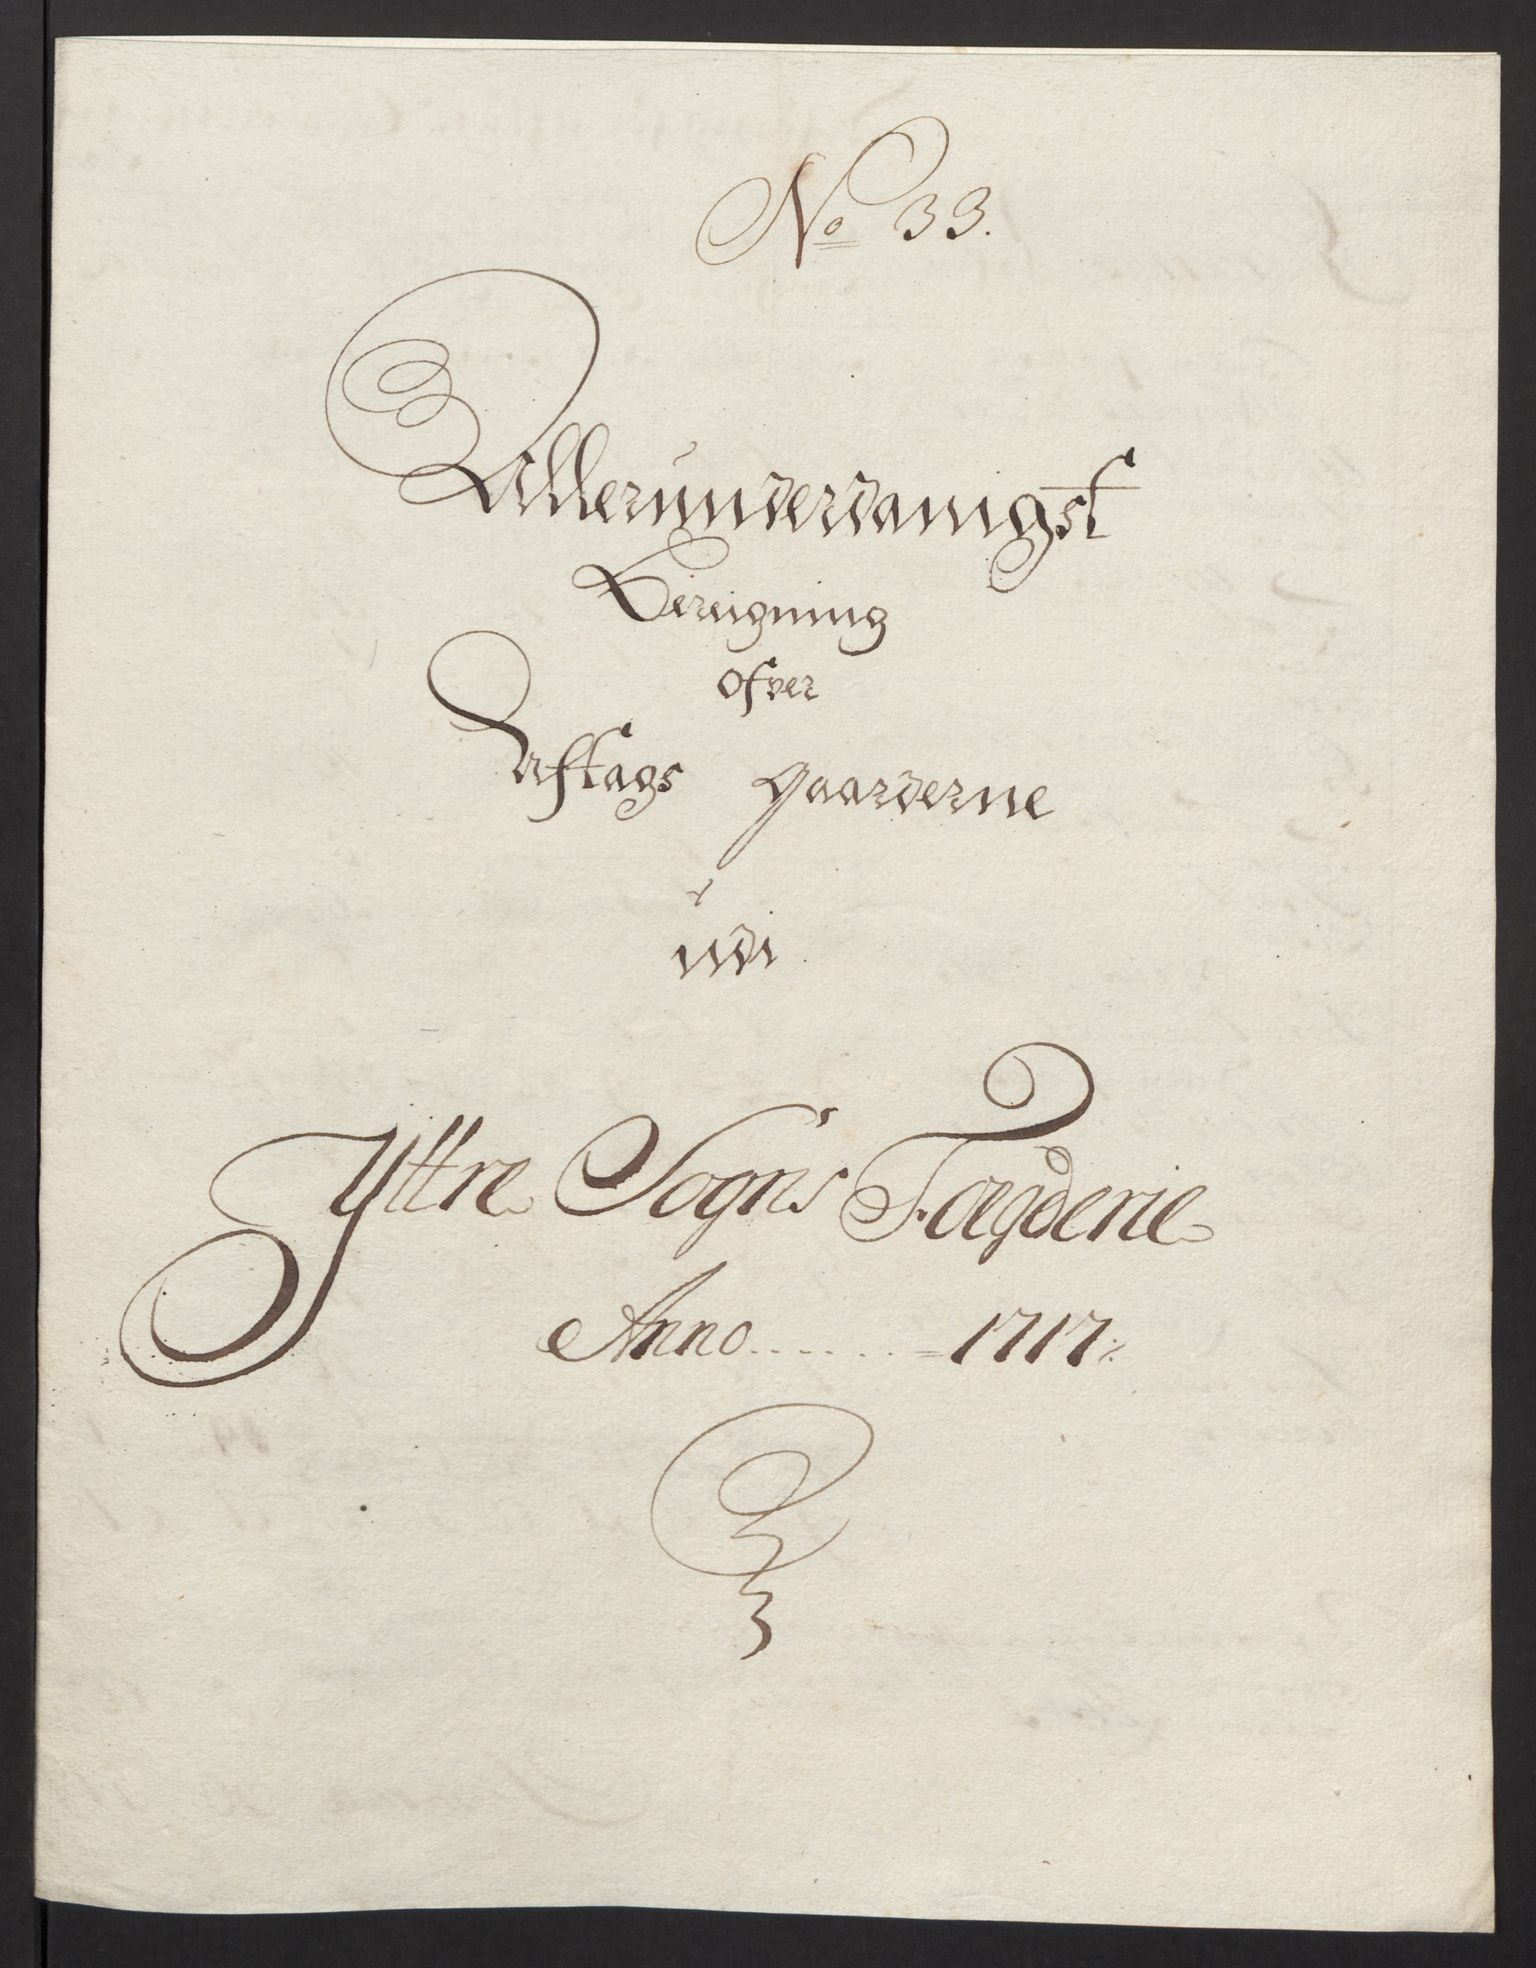 No 33.
Allerunderdanigst
Bereigning
ofver
Aftags gaarderne
udi
Yttre Sogns Fægderie
Anno...... =1717: